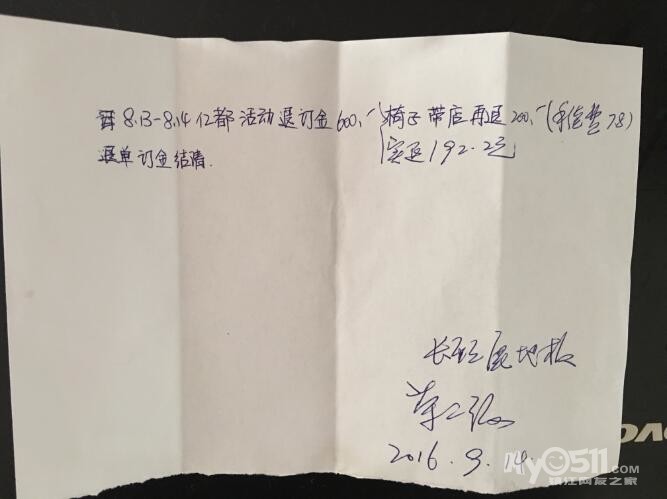 8.13-8.14 亿都 活动 退订金 600.- 椅子 带店 再退 200.- (手续费 7.8)
退单 订金 结清. 实退 192.2元
地板
2016.9.14.
My0511.com
镇江网友之家